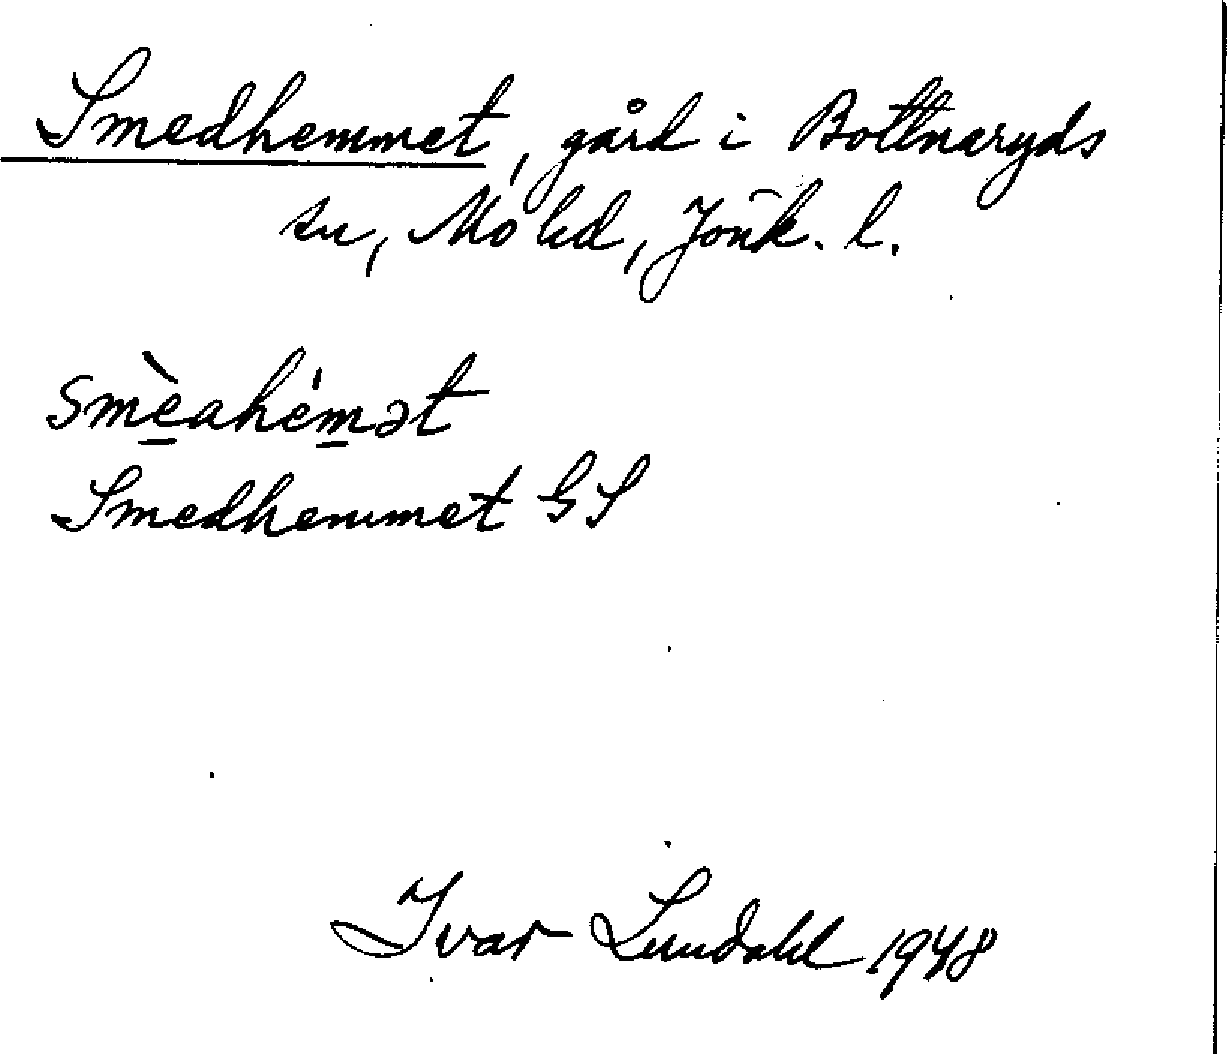 Smedhemmet, gård i Bottnaryds
sn, Mo hd, Jönk. l.
smèahémət
Smedhemmet GS
Ivar Lundahl 1948